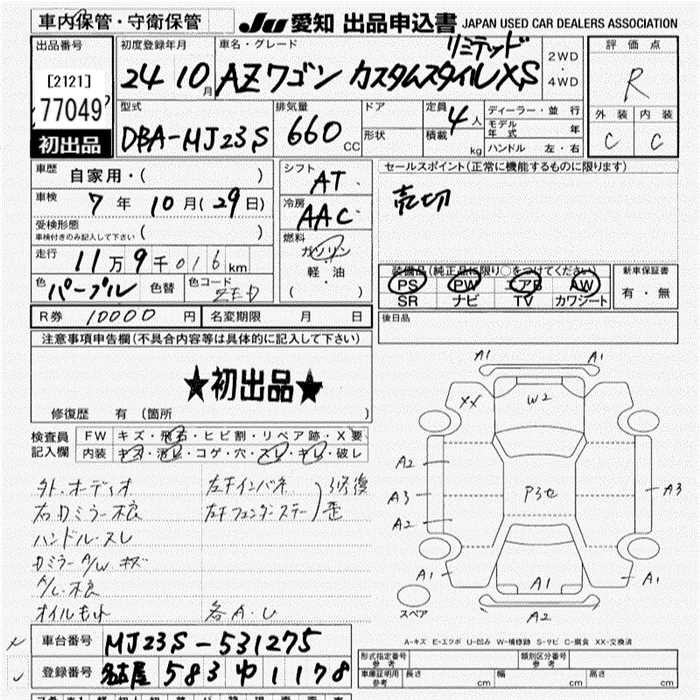 車内保管・守衛保管
JU 愛知 出品申込書 JAPAN USED CAR DEALERS ASSOCIATION
出品番号
[2121]
77049
初出品
初度登録年月
24 10月
車名・グレード
リミテッド
AZワゴン カスタムスタイルXS
2WD
・
4WD
評価点
R
外装 内装
C C
型式
DBA-MJ23S
排気量
660 CC
ドア
形状
定員
4人
積載
kg
ディーラー・並行
モデル年式 年
ハンドル 左・右
車歴
自家用・( )
車検
7年 10月(29日)
受検形態
車検付きのみ記入して下さい ( )
走行
11万9千016km
色
パープル
色替
色コード
ZED
シフト
AT
冷房
AAC
燃料
ガソリン
軽・油
・
( )
セールスポイント(正常に機能するものに限ります)
売切
装備品(純正品に限り○をつけてください)
PS PW エアB AW
SR ナビ TV カワシート
新車保証書
有・無
R券 10000円
名変期限 月 日
後日品
注意事項申告欄(不具合内容等は具体的に記入して下さい)
★初出品★
修復歴 有(箇所 )
検査員記入欄
FW キズ・飛石・ヒビ割・リペア跡・X要
内装 キズ・汚レ・コゲ・穴・スレ・キレ・破レ
外.オーディオ
右ドミラー不良
ハンドル・スレ
ドミラーA/Wキズ
A/C.不良
オイルもれ
左右インパネ
左右フェンダーステー
修復
歪
各A.U
A1 A1
XX
W2
A2
A3
A2
P3セ
A3
A1
A1
A1
A2
スペア
A-キズ E-エクボ U-凹み W-補修跡 S-サビ C-腐食 XX-交換済
車台番号
MJ23S-531275
登録番号
名古屋 583 ゆ 1178
形式指定番号
参考
類別区分番号
参考
車庫証明用
参考
長さ cm
幅 cm
高さ cm